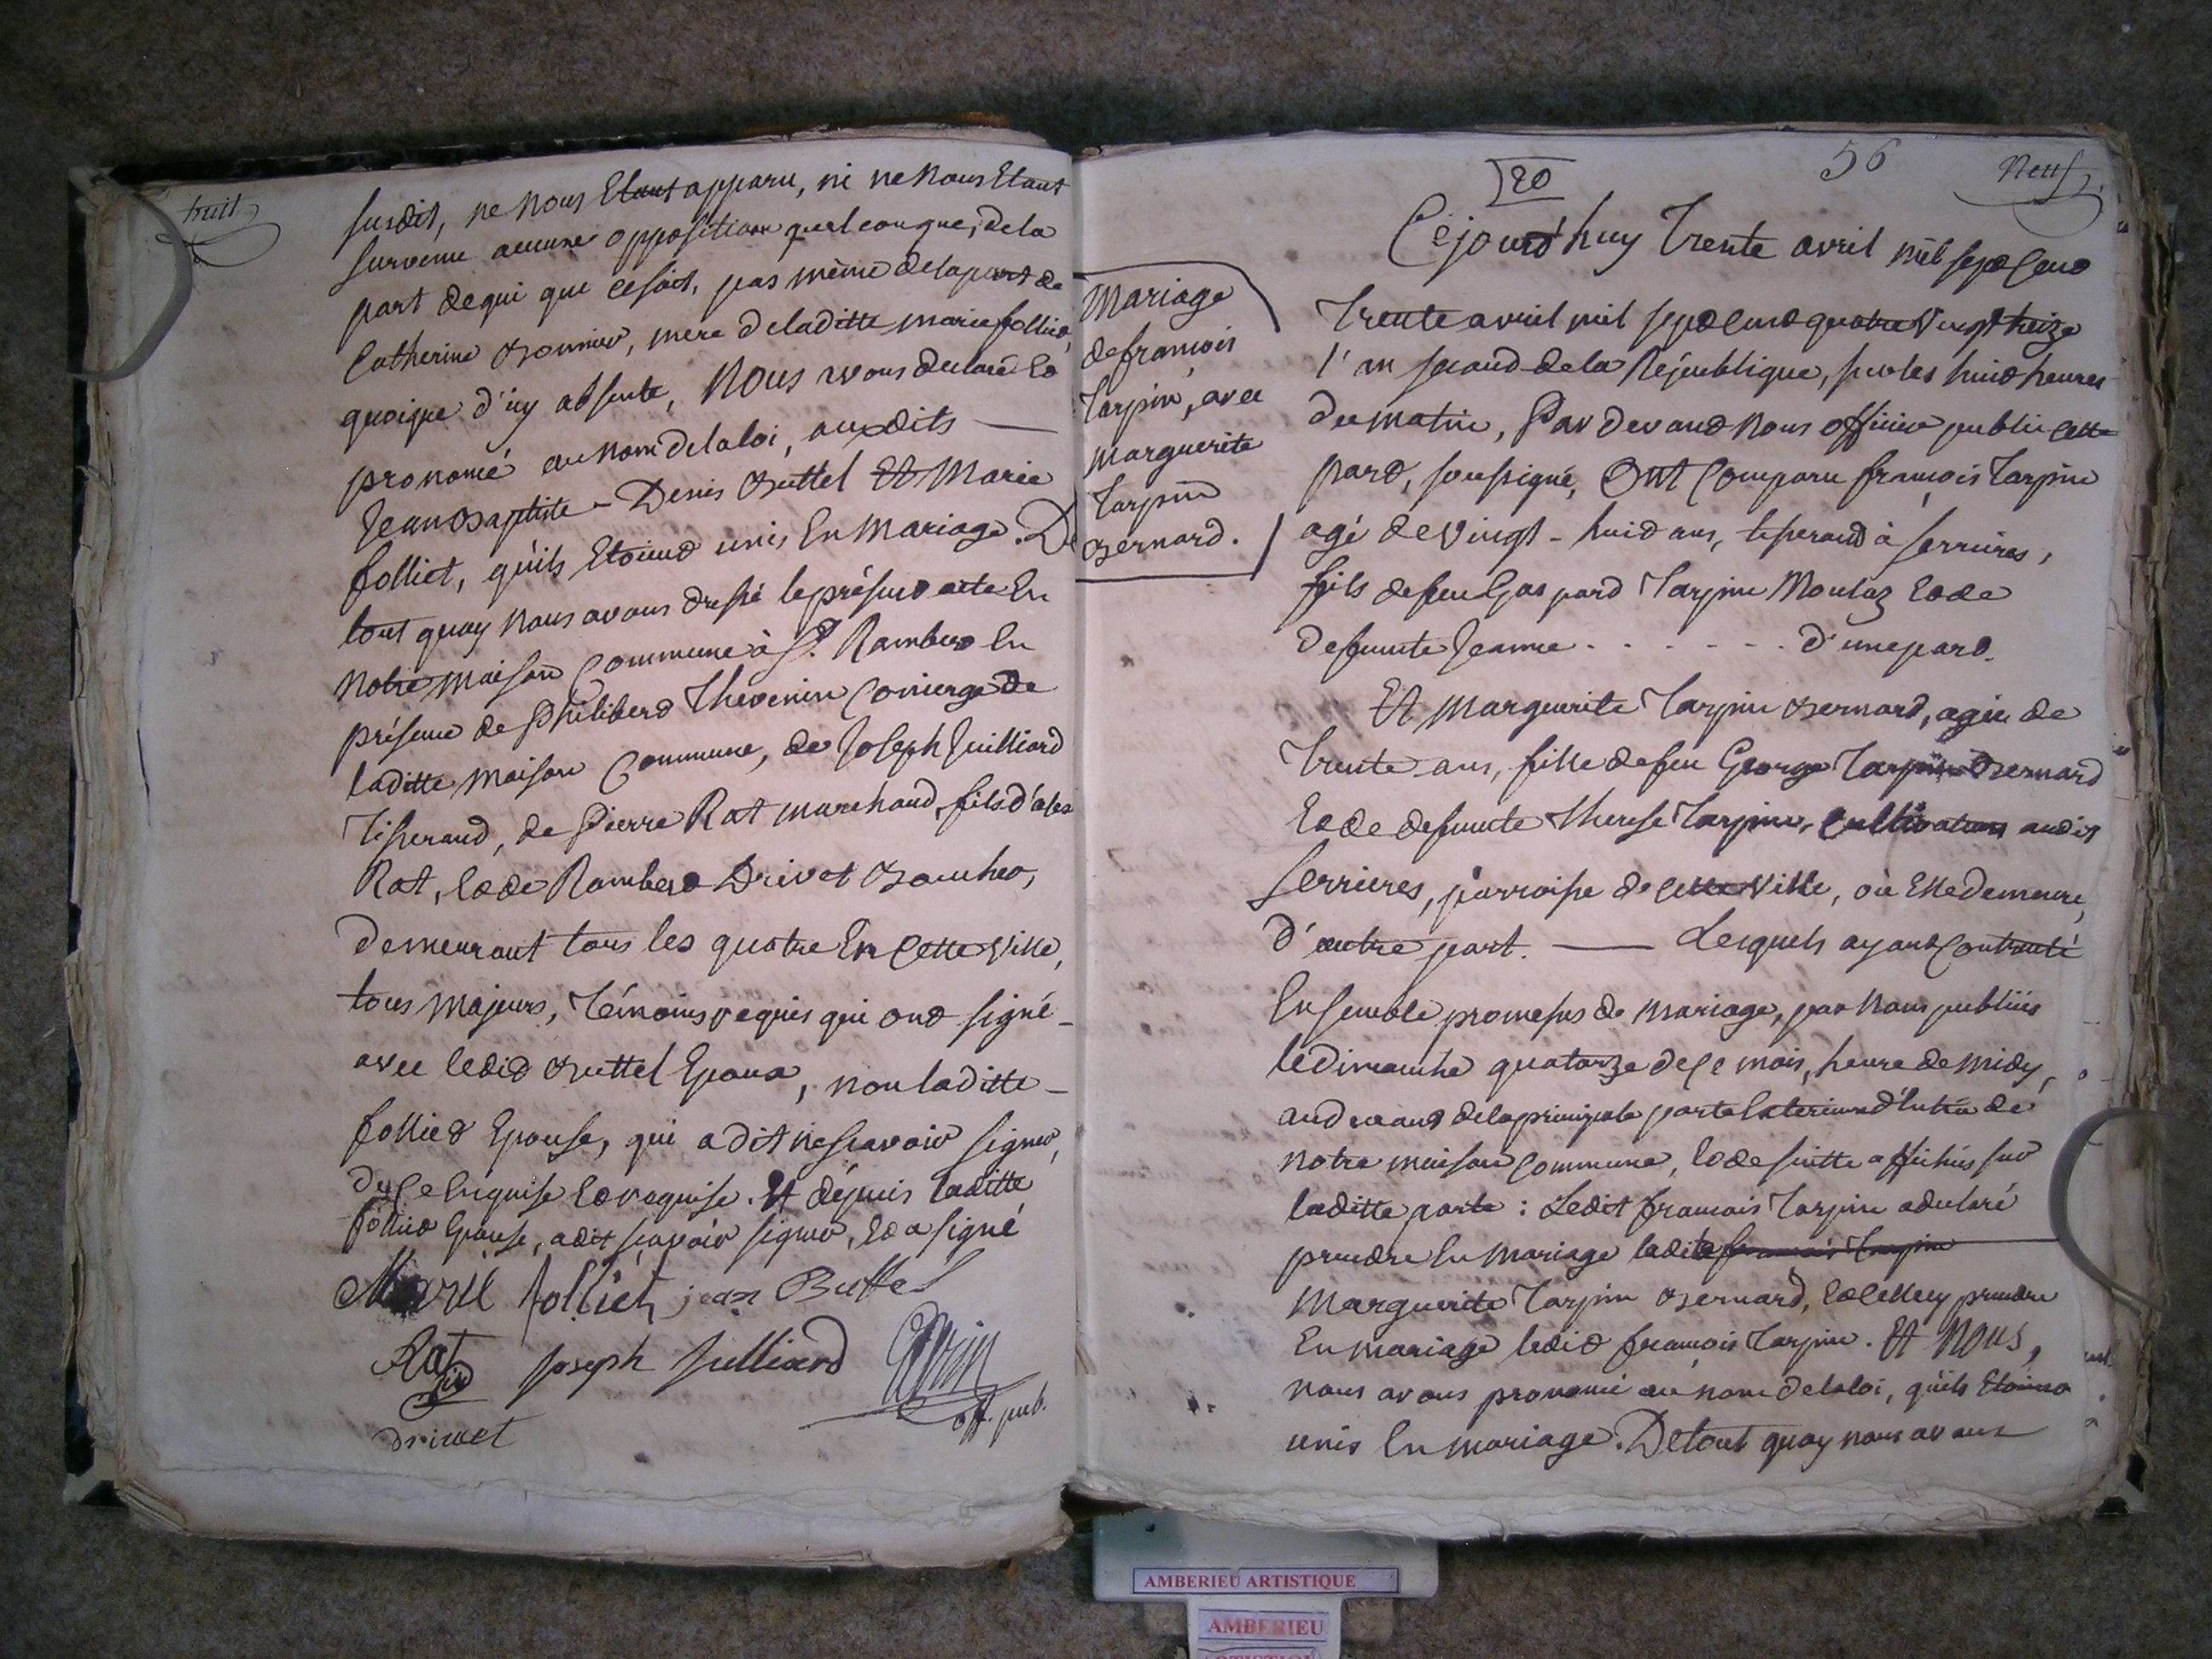 huit
susdit, ne nous Etant apparu, ni ne nous Etant
survenu aucune opposition quelconque, de la
part de qui que ce soit, pas même de la part de
Catherine Bonnier, mere de laditte marie folliet,
quoique d'icy absente, Nous avons declaré et
pronomé au nom de la loi, auxdits —
Jean Baptiste - Denis Buttel Et Marie
folliet, qu'ils Etoient unis En Mariage. De
tout quoy nous avons dressé le présent acte En
notre maison Commune à St. Rambert En
présence de Philibert Thevenin Concierge de
laditte maison Commune, de Joseph Juilliard
Tisserand, de Pierre Rat marchand, fils d'alex
Rat, et de Rambert Drivet Boucher,
demeurant tous les quatre En Cette Ville,
tous majeurs, Témoins requis qui ont signé -
avec ledit Buttel Epoux, non laditte -
folliet Epouse, qui a dit ne scavoir signer,
de Ce Enquise et requise. Et dépuis laditte
folliet Epouse, a dit scavoir signer, et a signé
Marie folliet jean Buttel
Rat Joseph Julliard
drivet off. pub.
Mariage
de francois
Tarpin, avec
marguerite
Tarpin
Bernard.
20
56
Neuf
Cejourd'huy Trente avril mil sept Cent
Trente avril mil sept Cent quatre Vingt treize
l'an second de la République, sur les huit heures
du matin, Par devant Nous officier public Cette
part, soussigné, Ont Comparu françois Tarpin
agé de Vingt - huit ans, tisserand à serrieres,
fils de feu Gaspard Tarpin Moulaz et de
defunte Jeanne . . . . . . d'une part.
Et Marguerite Tarpin Bernard, agée de
Trente ans, fille de feu George Tarpin Bernard
et de defunte Therese Tarpin, Cultivateurs audit
Serrieres, parroisse de Cette Ville, où Elle demeure,
d'autre part. — Lesquels ayant Contracté
Ensemble promesses de mariage, par Nous publiées
le dimanche quatorze de Ce mois, heure de midy,
audevant de la principale porte Exterieure d'Entrée de
notre maison Commune, et de suitte affichées sur
laditte porte : Ledit francois Tarpin a declaré
prendre En mariage ladite francois Tarpin
Marguerite Tarpin Bernard, et Celle cy prendre
En mariage ledit françois Tarpin. Et Nous,
nous avons pronomé au nom de la loi, qu'ils Etoient
unis En mariage. De tout quoy nous avons
AMBERIEU ARTISTIQUE
AMBERIEU